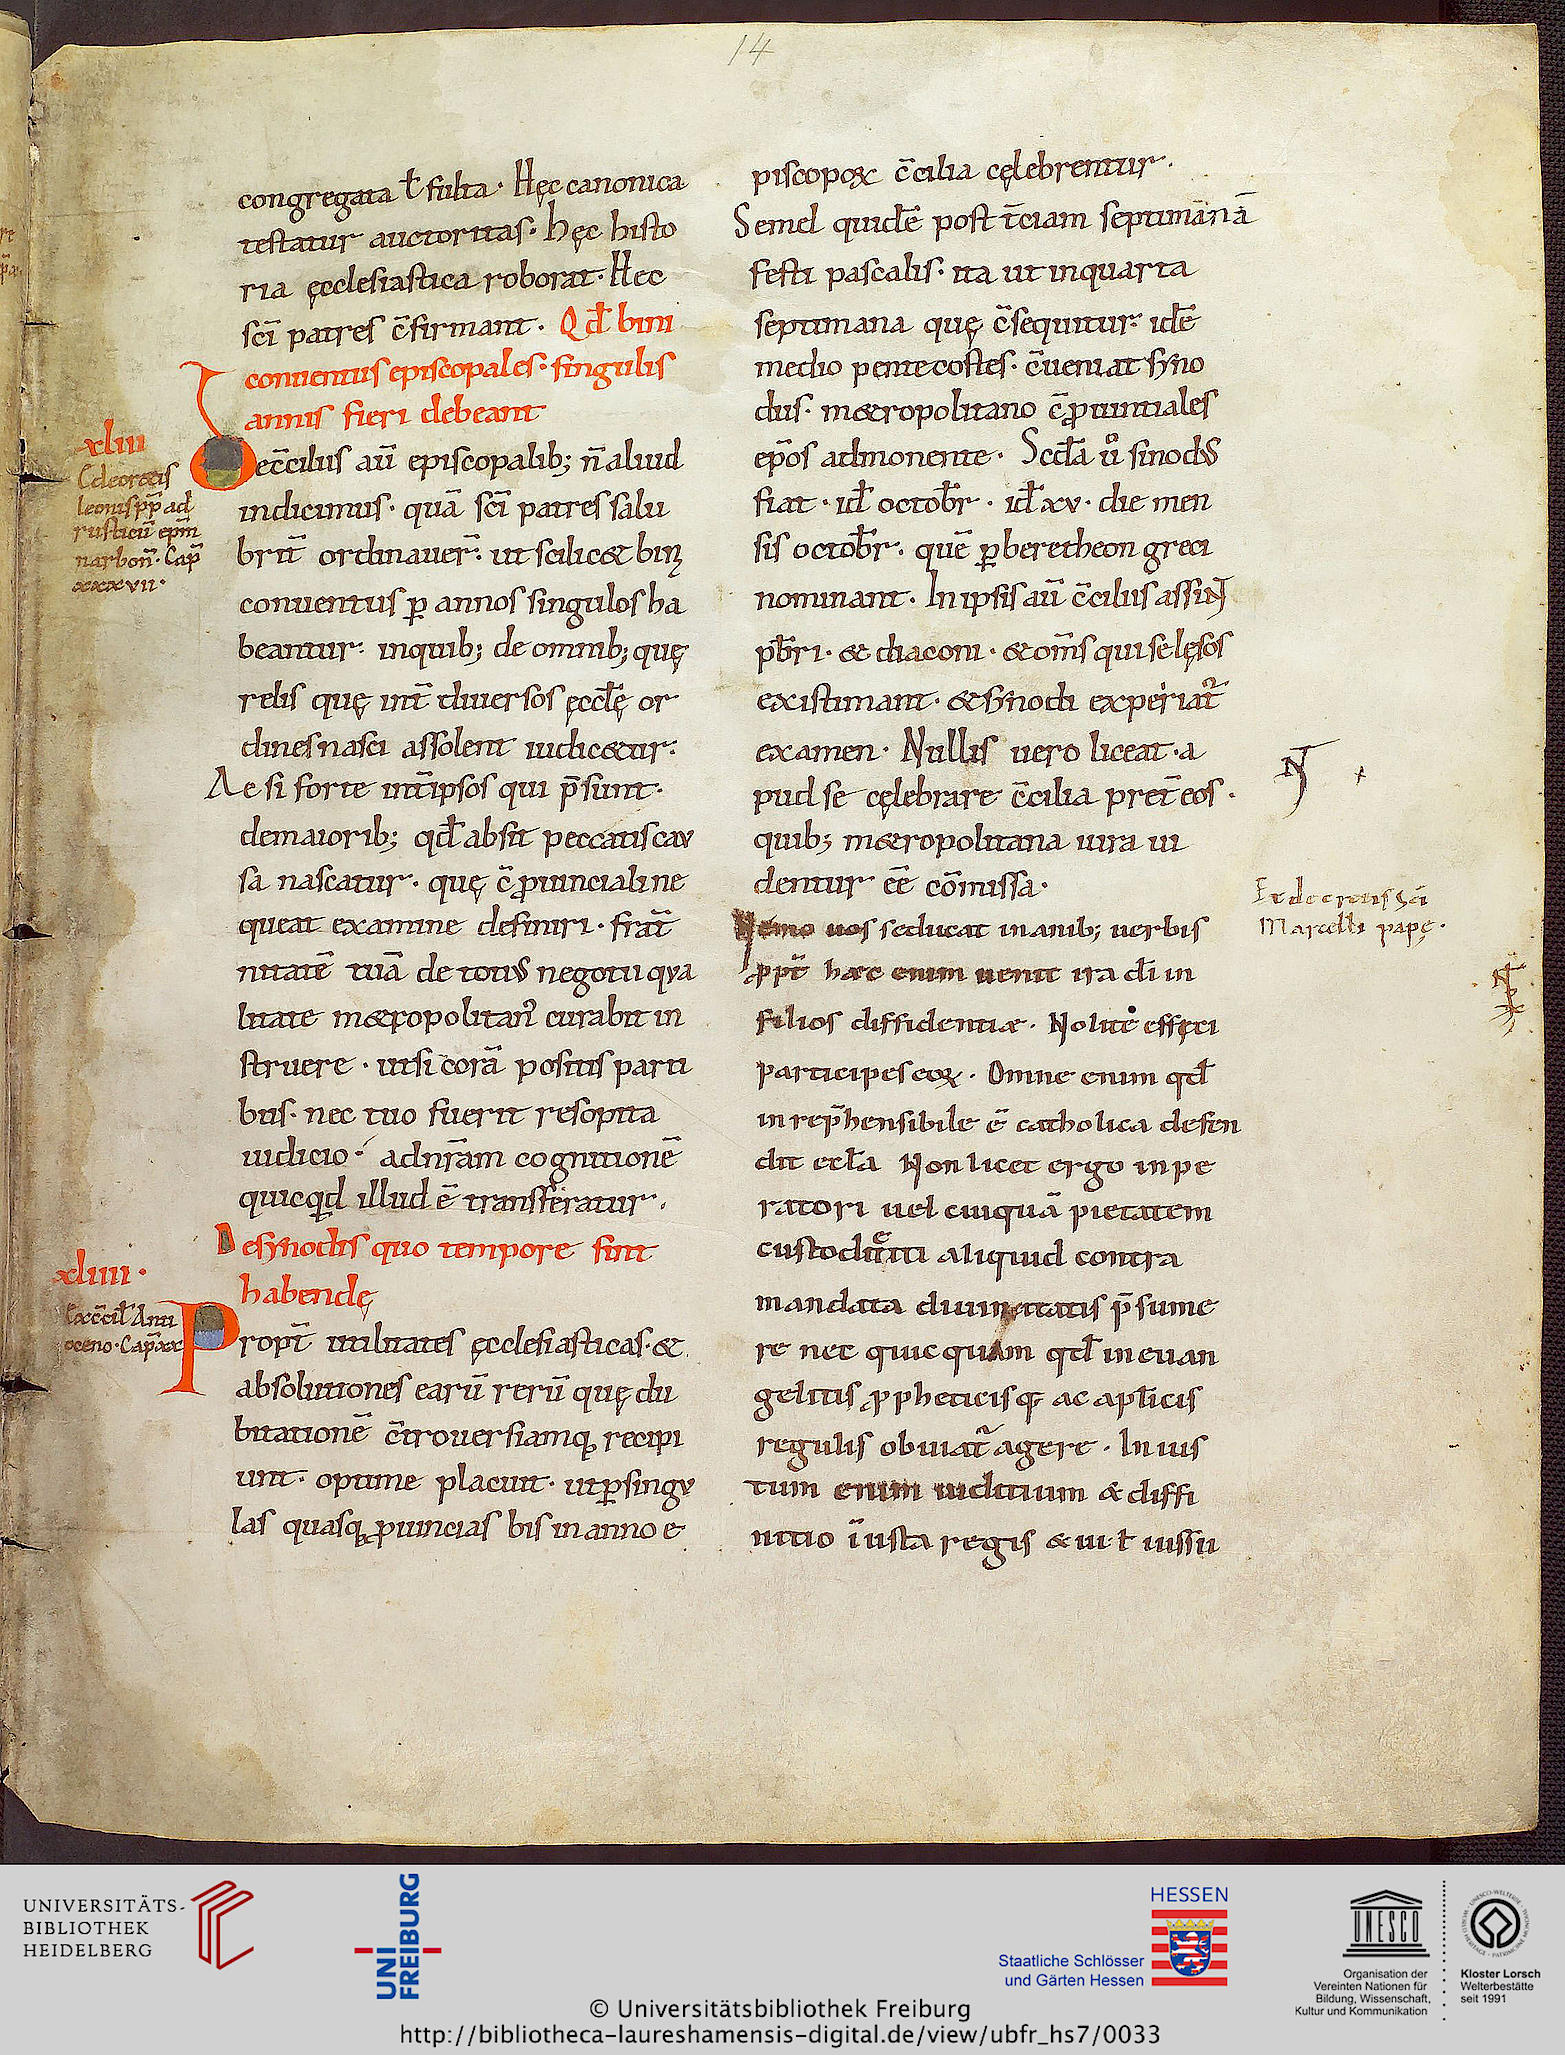 14
congregata ł fulta. Hęc canonica
testatur auctoritas. hęc histo
ria ęcclesiastica roborat. Hec
sc̄i patres c̄firmant. Qd̄ bini
conuentus episcopales. singulis
annis fieri debeant
xliii
Ex decretis
leonis pp̄ ad
rusticū ep̄m
narbon̄. Cap̄
xxxvii.
De c̄ciliis aū episcopalib; n̄ aliud
indicimus. quā sc̄i patres salu
brit̄ ordinauer̄. ut scilic& bini
conuentus ꝑ annos singulos ha
beantur. inquib; de omnib; quę
relis quę int̄ diuersos ęccl̄ę or
dines nasci assolent iudic&ur.
Ae si forte int̄ ipsos qui p̄sunt.
demaiorib; qd̄ absit peccatis cau
sa nascatur. quę c̄ ꝓuinciali ne
queat examine definiri. frat̄
nitatē tuā de totius negotii qua
litate m&ropolitan᷒ curabit in
struere. utsi corā positis parti
bus. nec tuo fuerit resopita
iudicio. adnr̄am cognitionē
quicqd illud ē transferatur.
De synodis quo tempore sint
habendę
xliiii.
Ex c̄cil̄ Anti
oceno. Cap̄ xx
Propt̄ utilitates ęcclesiasticas. &
absolutiones earū rerū quę du
bitationē c̄trouersiamq; recipi
unt. optime placuit. ut ꝑ singu
las quasq; ꝓuincias bis in anno e
piscopoꝝ c̄cilia cęlebrentur.
Semel quidē post t̄ciam septimanā
festi pascalis. ita ut inquarta
septimana quę c̄sequitur. id ē
medio pentecostes. c̄ueniat syno
dus. m&ropolitano c̄ꝓuintiales
ep̄os admonente. Scd̄a ů sinodus
fiat. id̄ octobr̄. id̄ xv. die men
sis octobr̄. quē ꝑberetheon greci
nominant. In ipsis aū c̄ciliis assint
pb̄ri. & diaconi. & om̄s qui se lęsos
existimant. & synodi experiat᷒
examen. Nullis uero liceat. a
pud se cęlebrare c̄cilia pret̄ eos.
quib; m&ropolitana iura ui
dentur eē cōmissa.
Ex decretis sc̄i
Marcelli papę.
Nemo uos seducat inanib; uerbis
ꝓpt̄ hæc enim uenit ira dī in
filios diffidentiæ. Nolite effici
participes eoꝝ. Omne enim qd̄
inrep̄hensibile ē catholica defen
dit eccl̄a Non licet ergo inpe
ratori uel cuiquā pietatem
custodienti aliquid contra
mandata diuinitatis p̄sume
re nec quicquam qd̄ in euan
geliis ꝓpheticisq; ac apl̄icis
regulis obuiat᷒ agere. Inius
tum enim iuditium & diffi
nitio iniusta regis & ui ł iussu
UNIVERSITÄTS-
BIBLIOTHEK
HEIDELBERG
UNI
FREIBURG
HESSEN
Staatliche Schlösser
und Gärten Hessen
UNESCO
Organisation der
Vereinten Nationen für
Bildung, Wissenschaft,
Kultur und Kommunikation
Kloster Lorsch
Welterbestätte
seit 1991
© Universitätsbibliothek Freiburg
http://bibliotheca-laureshamensis-digital.de/view/ubfr_hs7/0033